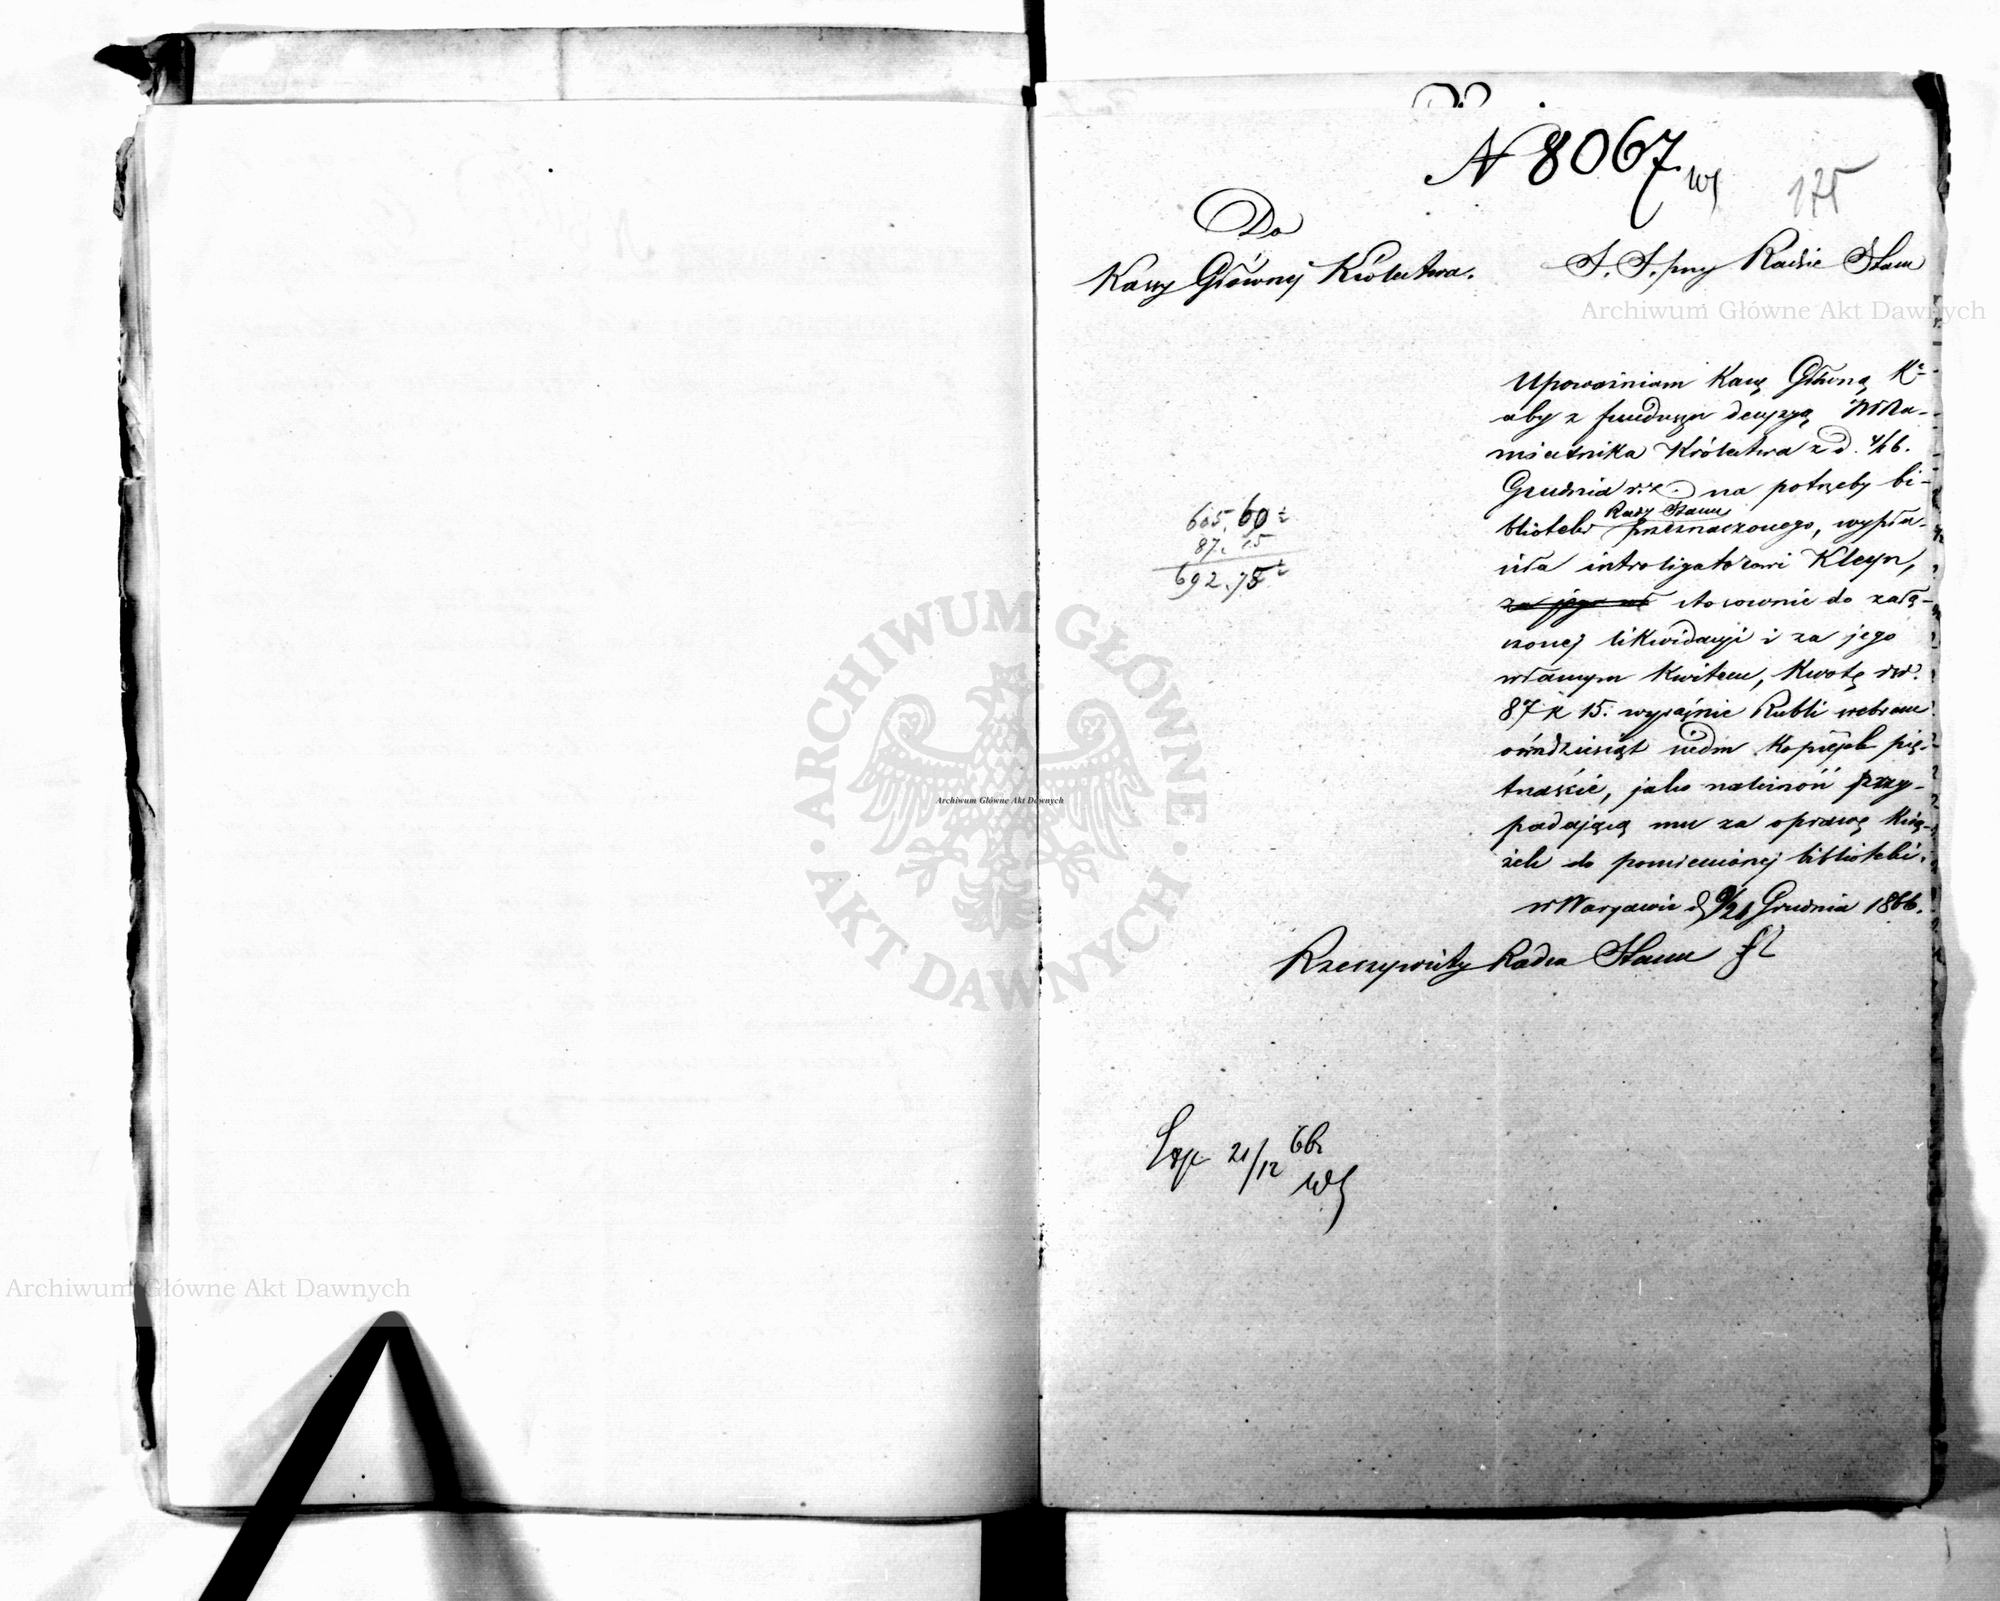 N 8067
175
Do
Kassy Głównej Królestwa.
S. S. przy Radzie Stanu
Upoważniam Kassę Główną Kr
aby z funduszu decyzyą JW Na-
miestnika Królestwa z d. 4/16.
Grudnia r. z. na potrzeby bi-
Rady Stanu
blioteki przeznaczonego, wypła-
605. 60
87. 15
692. 75
ciła introligatorowi Kleyn,
za jego wł stosownie do załą-
czonej likwidacyi i za jego
własnym kwitem, kwotę rsr.
87 k 15. wyraźnie Rubli srebrem
ośmdziesiąt siedm kopiejek pię-
tnaście, jako należność przy-
padającą mu za oprawę Ksią-
żek do pomienionej biblioteki.
w Warszawie d 9/21 Grudnia 1866.
Rzeczywisty Radca Stanu
Exp 21/12 66
Archiwum Główne Akt Dawnych
Archiwum Główne Akt Dawnych
Archiwum Główne Akt Dawnych
ARCHIWUM GŁÓWNE
AKT DAWNYCH